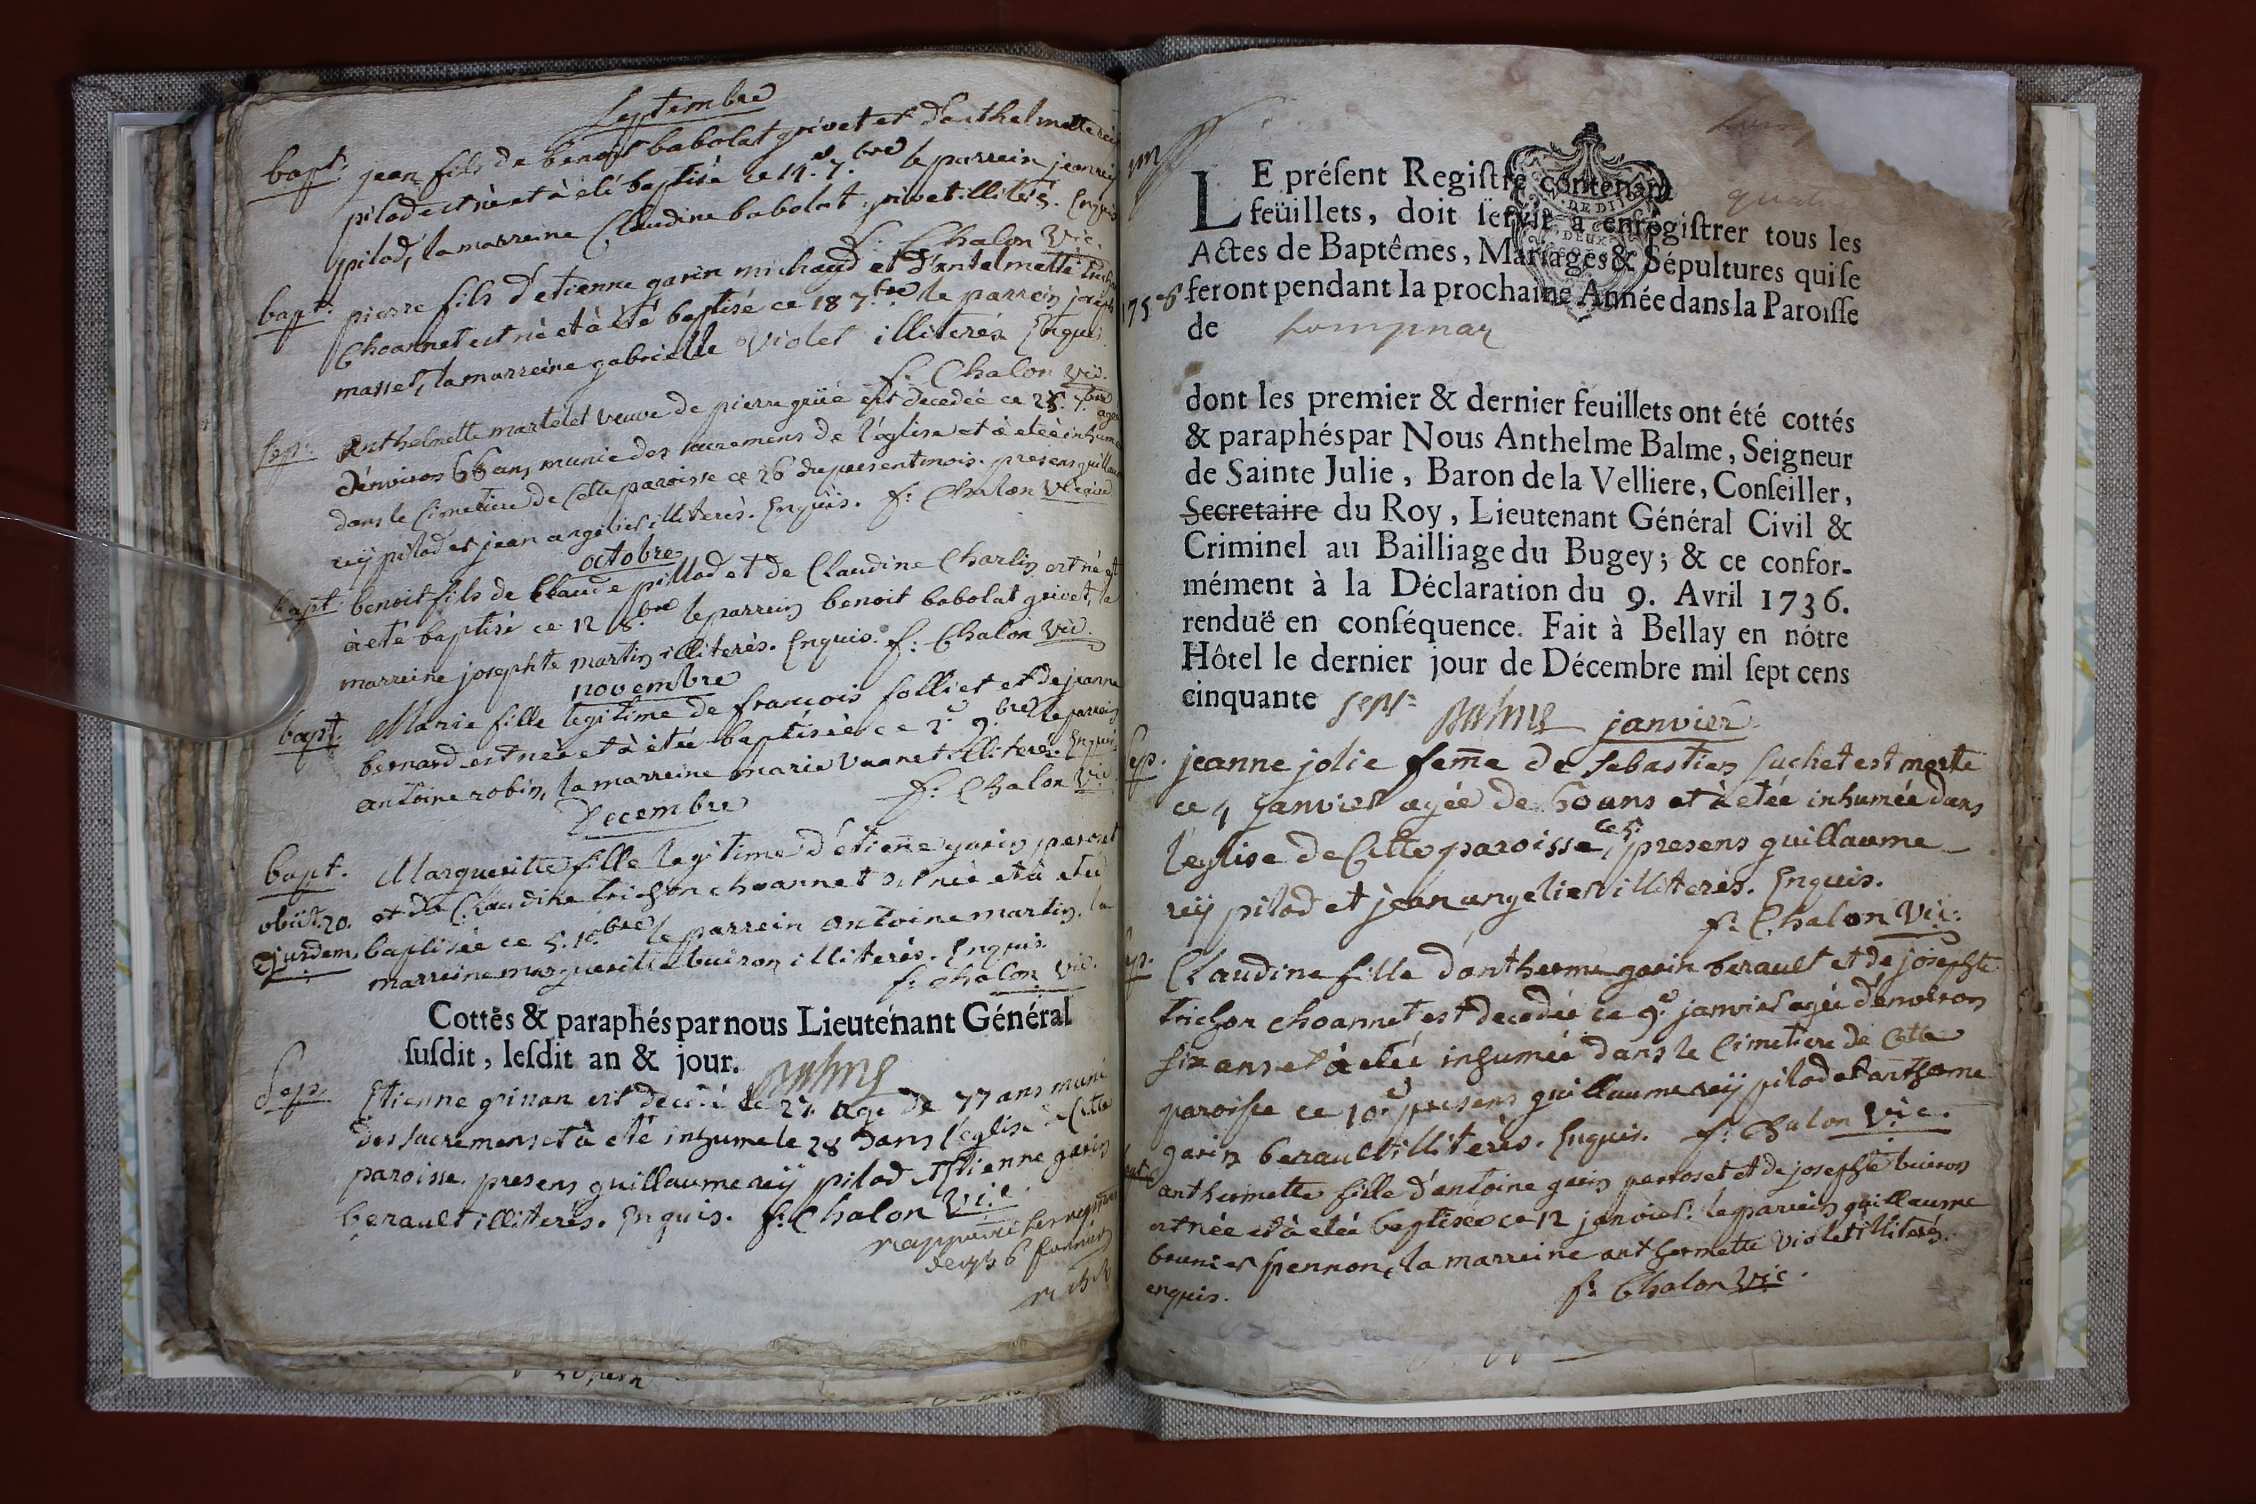 Septembre
bapt. jean fils de benoit babolat grivet et d'anthelmette reij
pilod est né et à eté baptisé ce 14.e 7.bre le parrein jean reij
pilod, la marreine Claudine babolat grivet illiterés. Enquis
f. Chalon Vic.
bapt. pierre fils d'etienne garin michaud et d'antelmette trichon
Choannet est né et à eté baptisé ce 18 7.bre le parrein joseph
masset, la marreine gabrielle Violet illiterés Enquis
f. Chalon Vic.
Sep. Anthelmette martelet veuve de pierre est decedée ce 25. 7.bre agée
d'environ 66 ans, munie des sacremens de l'église et à eteé inhumée
dans le Cimetiere de Cette paroisse ce 26 du present mois. presens guillaume
reij pilod et jean angelier illiterés. Enquis. f. Chalon Vicaire
octobre
bapt. benoit fils de Claude pillod et de Claudine Charlin est né et
à eté baptisé ce 12 8.bre le parrein benoit babolat grivet, la
marreine josephte martin illiterés. Enquis. f. Chalon Vic.
novembre
bapt. Marie fille legitime de francois folliet et de jeanne
bernard est née et à etée baptisée ce 2.e 9.bre le parrein
antoine robin, la marreine marie vuanet illiterés. Enquis
f. Chalon Vic.
Decembre
bapt. Marguerite fille legitime d'étiene garin peroset
obiit. 20. et de Claudine trichon choannet est née et à etée
ejusdem, baptisée ce 5. 10.bre le parrein antoine martin, la
marreine marguerite buiron illiterés. Enquis.
f. Chalon Vic.
Cottés & paraphés par nous Lieutenant Général
susdit, lesdit an & jour. Balme
Sep. Etienne grinan est decédé le 27. agé de 77 ans muni
des sacremens et à eté inhumé le 28 dans l'eglise de Cette
paroisse. presens guillaume reij pilod Etienne garin
berault illiterés. Enquis. f. Chalon Vic.
1758
LE présent Registre contenant
feüillets, doit servir à enrégistrer tous les
Actes de Baptêmes, Mariages & Sépultures qui se
feront pendant la prochaine Année dans la Paroisse
de Lompnaz
dont les premier & dernier feuillets ont été cottés
& paraphés par Nous Anthelme Balme, Seigneur
de Sainte Julie, Baron de la Velliere, Conseiller,
Secretaire du Roy, Lieutenant Général Civil &
Criminel au Bailliage du Bugey; & ce confor-
mément à la Déclaration du 9. Avril 1736.
renduë en conséquence. Fait à Bellay en nôtre
Hôtel le dernier jour de Décembre mil sept cens
cinquante sept Balme
janvier
Sep. jeanne jolie feme de sebastien suchet est morte
ce 4 janvier agée de 60 ans et à etée inhumée dans
l'eglise de Cette paroisse, ce 5. presens guillaume
reij pilod et jean angelier illiterés. Enquis.
f. Chalon Vic.
Sep. Claudine fille d'antherme garin berault et de josephte
trichon choannet est decedée ce 9.e janvier agée d'environ
six ans et à etée inhumée dans le Cimetiere de Cette
paroisse ce 10.e presens guillaume reij pilod et antherme
garin berault illiterés. Enquis. f. Chalon Vic.
bapt. anthermette fille d'antoine garin perroset et de josephte buiron
est née et à etée baptisée ce 12 janvier. le parrein guillaume
brunier pennon, la marreine anthermette Violet illiterés.
enquis. f. Chalon Vic.